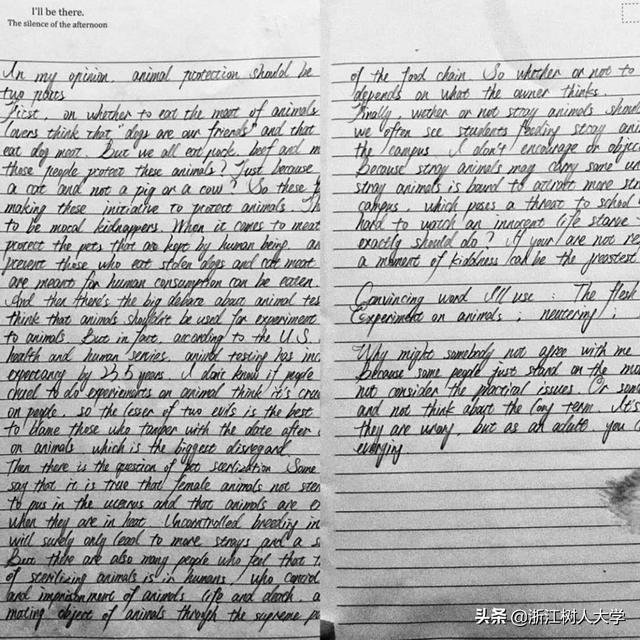 I'll be there.
The silence of the afternoon
In my opinion, animal protection should be
two parts
First, on whether to eat the meat of animals
lovers think that "dogs are our friends" and that
eat dog meat. But we all eat pork, beef and m
those people protect these animals? Just because
a cat and not a pig or a cow? So these p
making these initiative to protect animals. Th
to be moral kidnappers. When it comes to meat
protect the pets that are kept by human being, an
prevent those who eat stolen dogs and cat meat
are meant for human consumption can be eaten.
And then there's the big debate about animal tes
think that animals shouldn't be used for experiment
to animals. But in fact, according to the U.S.
health and human servies, animal testing has inc
expectancy by 23.5 years. I don't know if people
cruel to do experiements on animal think it's crue
on people, so the lesser of two evils is the best
to blame those who tamber with the date after
on animals, which is the biggest disregard.
Then there is the question of pet sterlization. Some
say that it is true that female animals not ster
to pus in the uterus and that animals are
when they are in heat. Uncontrolled breeding in
will surely only lead to more strays and a s
But there are also many people who feel that t
of sterilizing animals is in humans, who control
and imprisonment of animals life and death, a
mating object of animals through the supreme p
of the food chain. So whether or not to
depends on what the owner thinks.
Finally, wether or not stray animals shoul
we often see students feeding stray ani
the campus. I don't encourage or objec
Because stray animals may carry some
stray animals is bound to attract more str
campus, which poses a threat to school
hard to watch an innocent life starve
exactly should do? If your are not re
a moment of kidness can be the greastest
Convincing word I'll use : The flesh
Experiment on animals ; neutering ;
Why might somebody not agree with me
Because some people just stand on the mo
not consider the practical issues. Or som
and not think about the long term. It's
they are wrong, but as an adult, you c
everying.
头条 @浙江树人大学